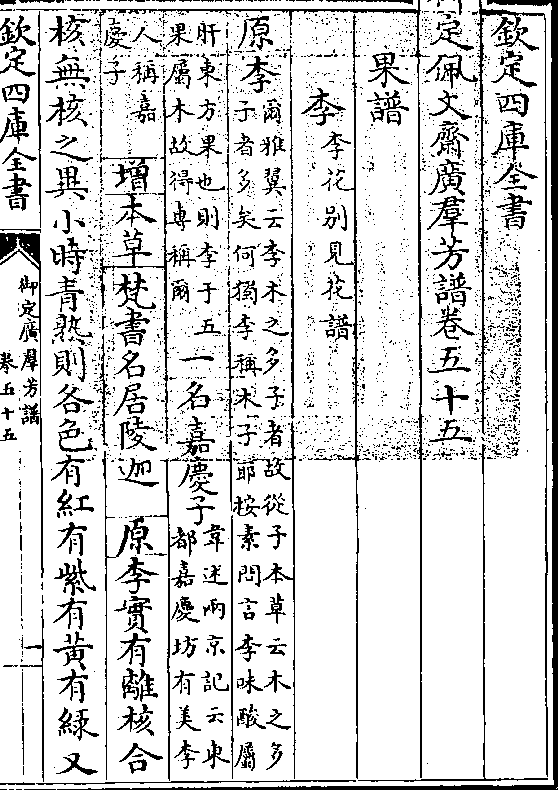 欽定四庫全書
御定佩文齋廣羣芳譜卷五十五
果譜
李李花別見花譜
原李爾雅翼云李木之多子者故從子本草云木之多
子者多矣何獨李稱木子耶按素問言李味酸屬
肝東方果也則李于五
果屬木故得專稱爾一名嘉慶子韋述兩京記云東
都嘉慶坊有美李
人稱嘉
慶子增本草梵書名居陵迦 原李實有離核合
核無核之異小時青熟則各色有紅有紫有黃有綠又
欽定四庫全書
御定廣羣芳譜
卷五十五
一